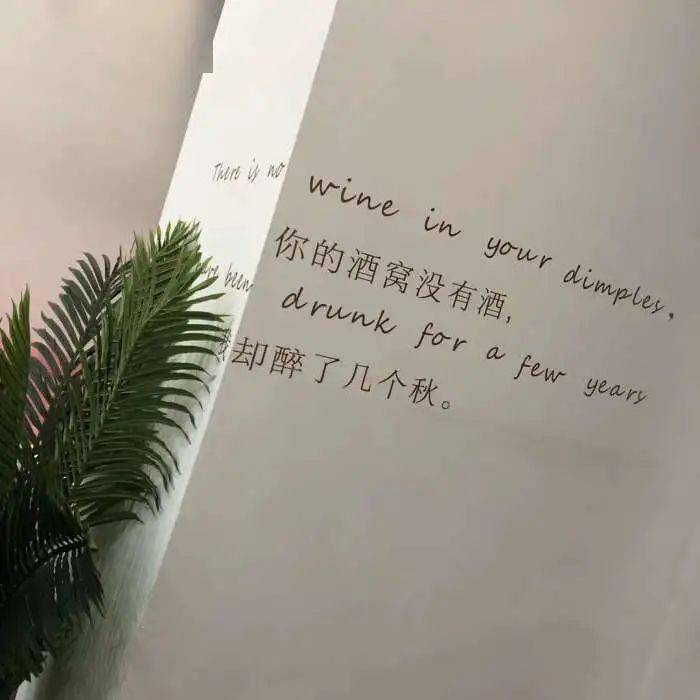 There is no wine in your dimples,
你的酒窝没有酒,
been drunk for a few years
我却醉了几个秋。